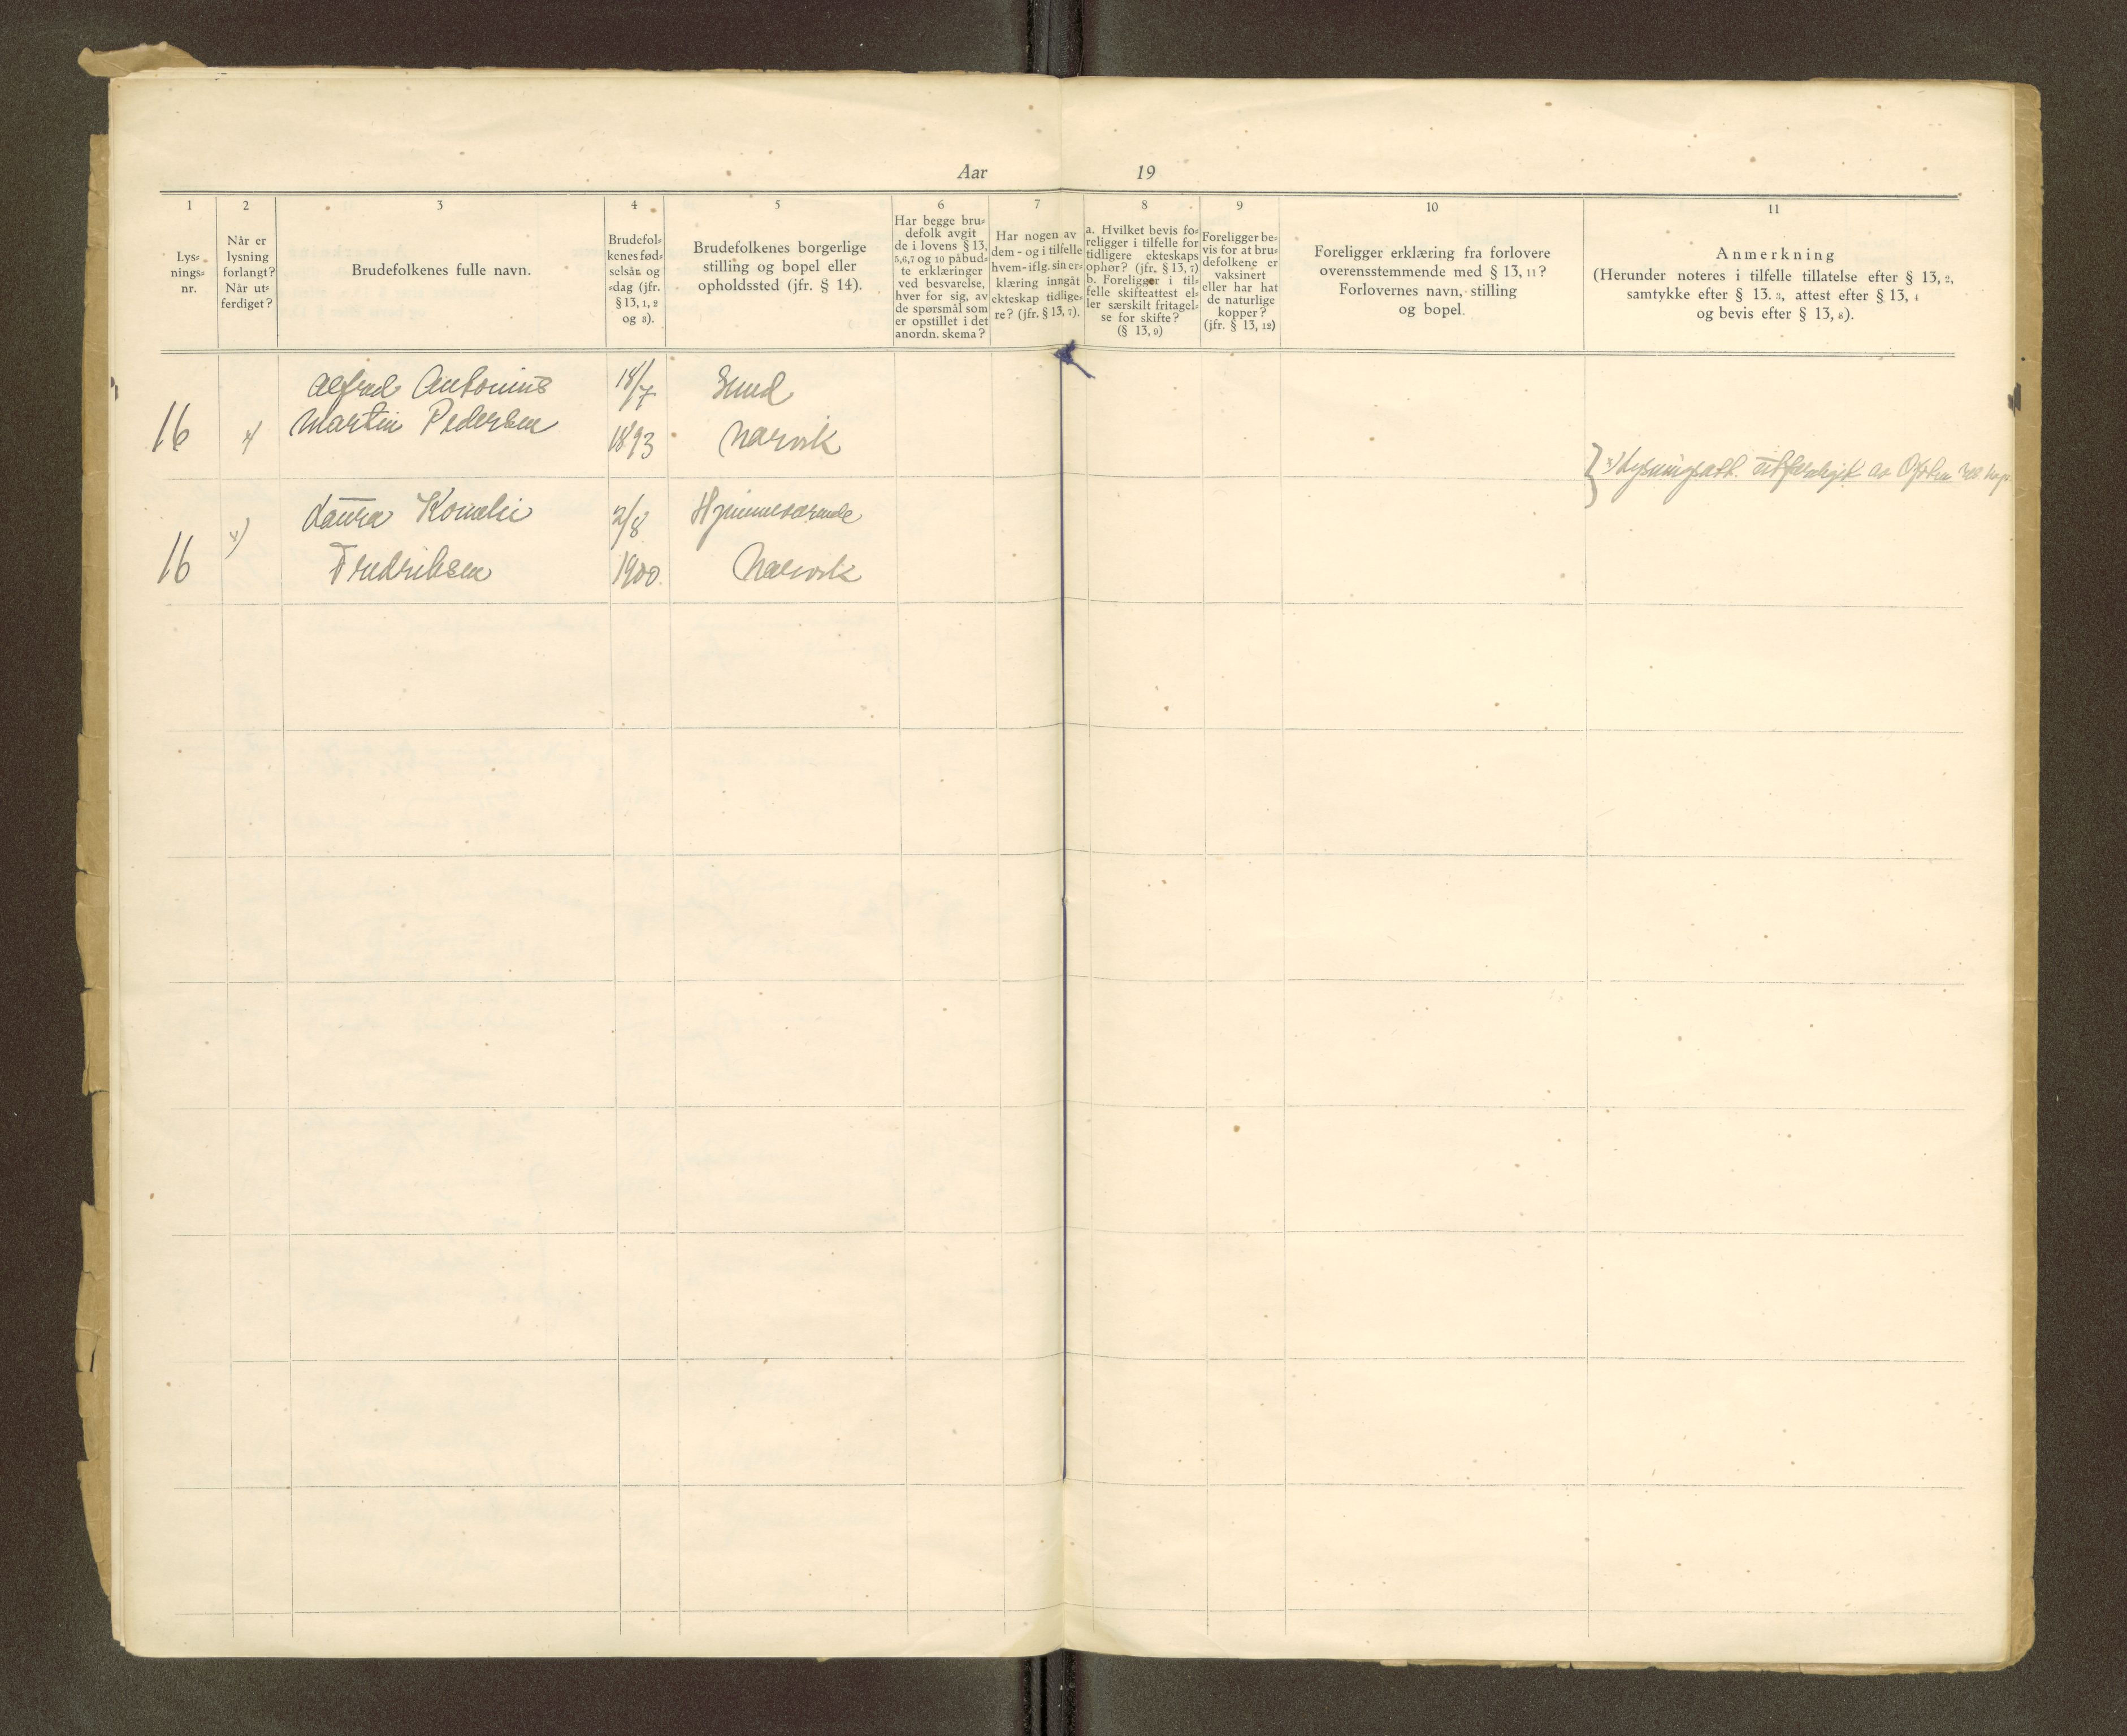 Aar 19
1
Lys-
nings-
nr.
2
Når er
lysning
forlangt?
Når ut-
ferdiget?
3
Brudefolkenes fulle navn.
4
Brudefol-
kenes fød-
selsår og
-dag (jfr.
§ 13, 1, 2
og 3).
5
Brudefolkenes borgerlige
stilling og bopel eller
opholdssted (jfr. § 14).
6
Har begge bru-
defolk avgit
de i lovens § 13,
5,6,7 og 10 påbud-
te erklæringer
ved besvarelse,
hver for sig, av
de spørsmål som
er opstillet i det
anordn. skema?
7
Har nogen av
dem - og i tilfelle
hvem - iflg. sin er-
klæring inngåt
ekteskap tidlige-
re? (jfr. § 13, 7).
8
a. Hvilket bevis fo-
religger i tilfelle for
tidligere ekteskaps
ophør? (jfr. § 13, 7)
b. Foreligger i til-
felle skifteattest el-
ler særskilt fritagel-
se for skifte?
(§ 13, 9)
9
Foreligger be-
vis for at bru-
defolkene er
vaksinert
eller har hat
de naturlige
kopper?
(jfr. § 13, 12)
10
Foreligger erklæring fra forlovere
overensstemmende med § 13, 11?
Forlovernes navn, stilling
og bopel.
11
Anmerkning
(Herunder noteres i tilfelle tillatelse efter § 13, 2,
samtykke efter § 13. 3, attest efter § 13, 4
og bevis efter § 13, 8).
Alfred Antonius 18/7 Smed
16 x) Martin Pedersen 1893 Narvik
} x) Lysningsatt. utferdiget av Ofoten
Laura Kornelie 2/8 Hjemmeværende
16 x) Fredriksen 1900 Narvik